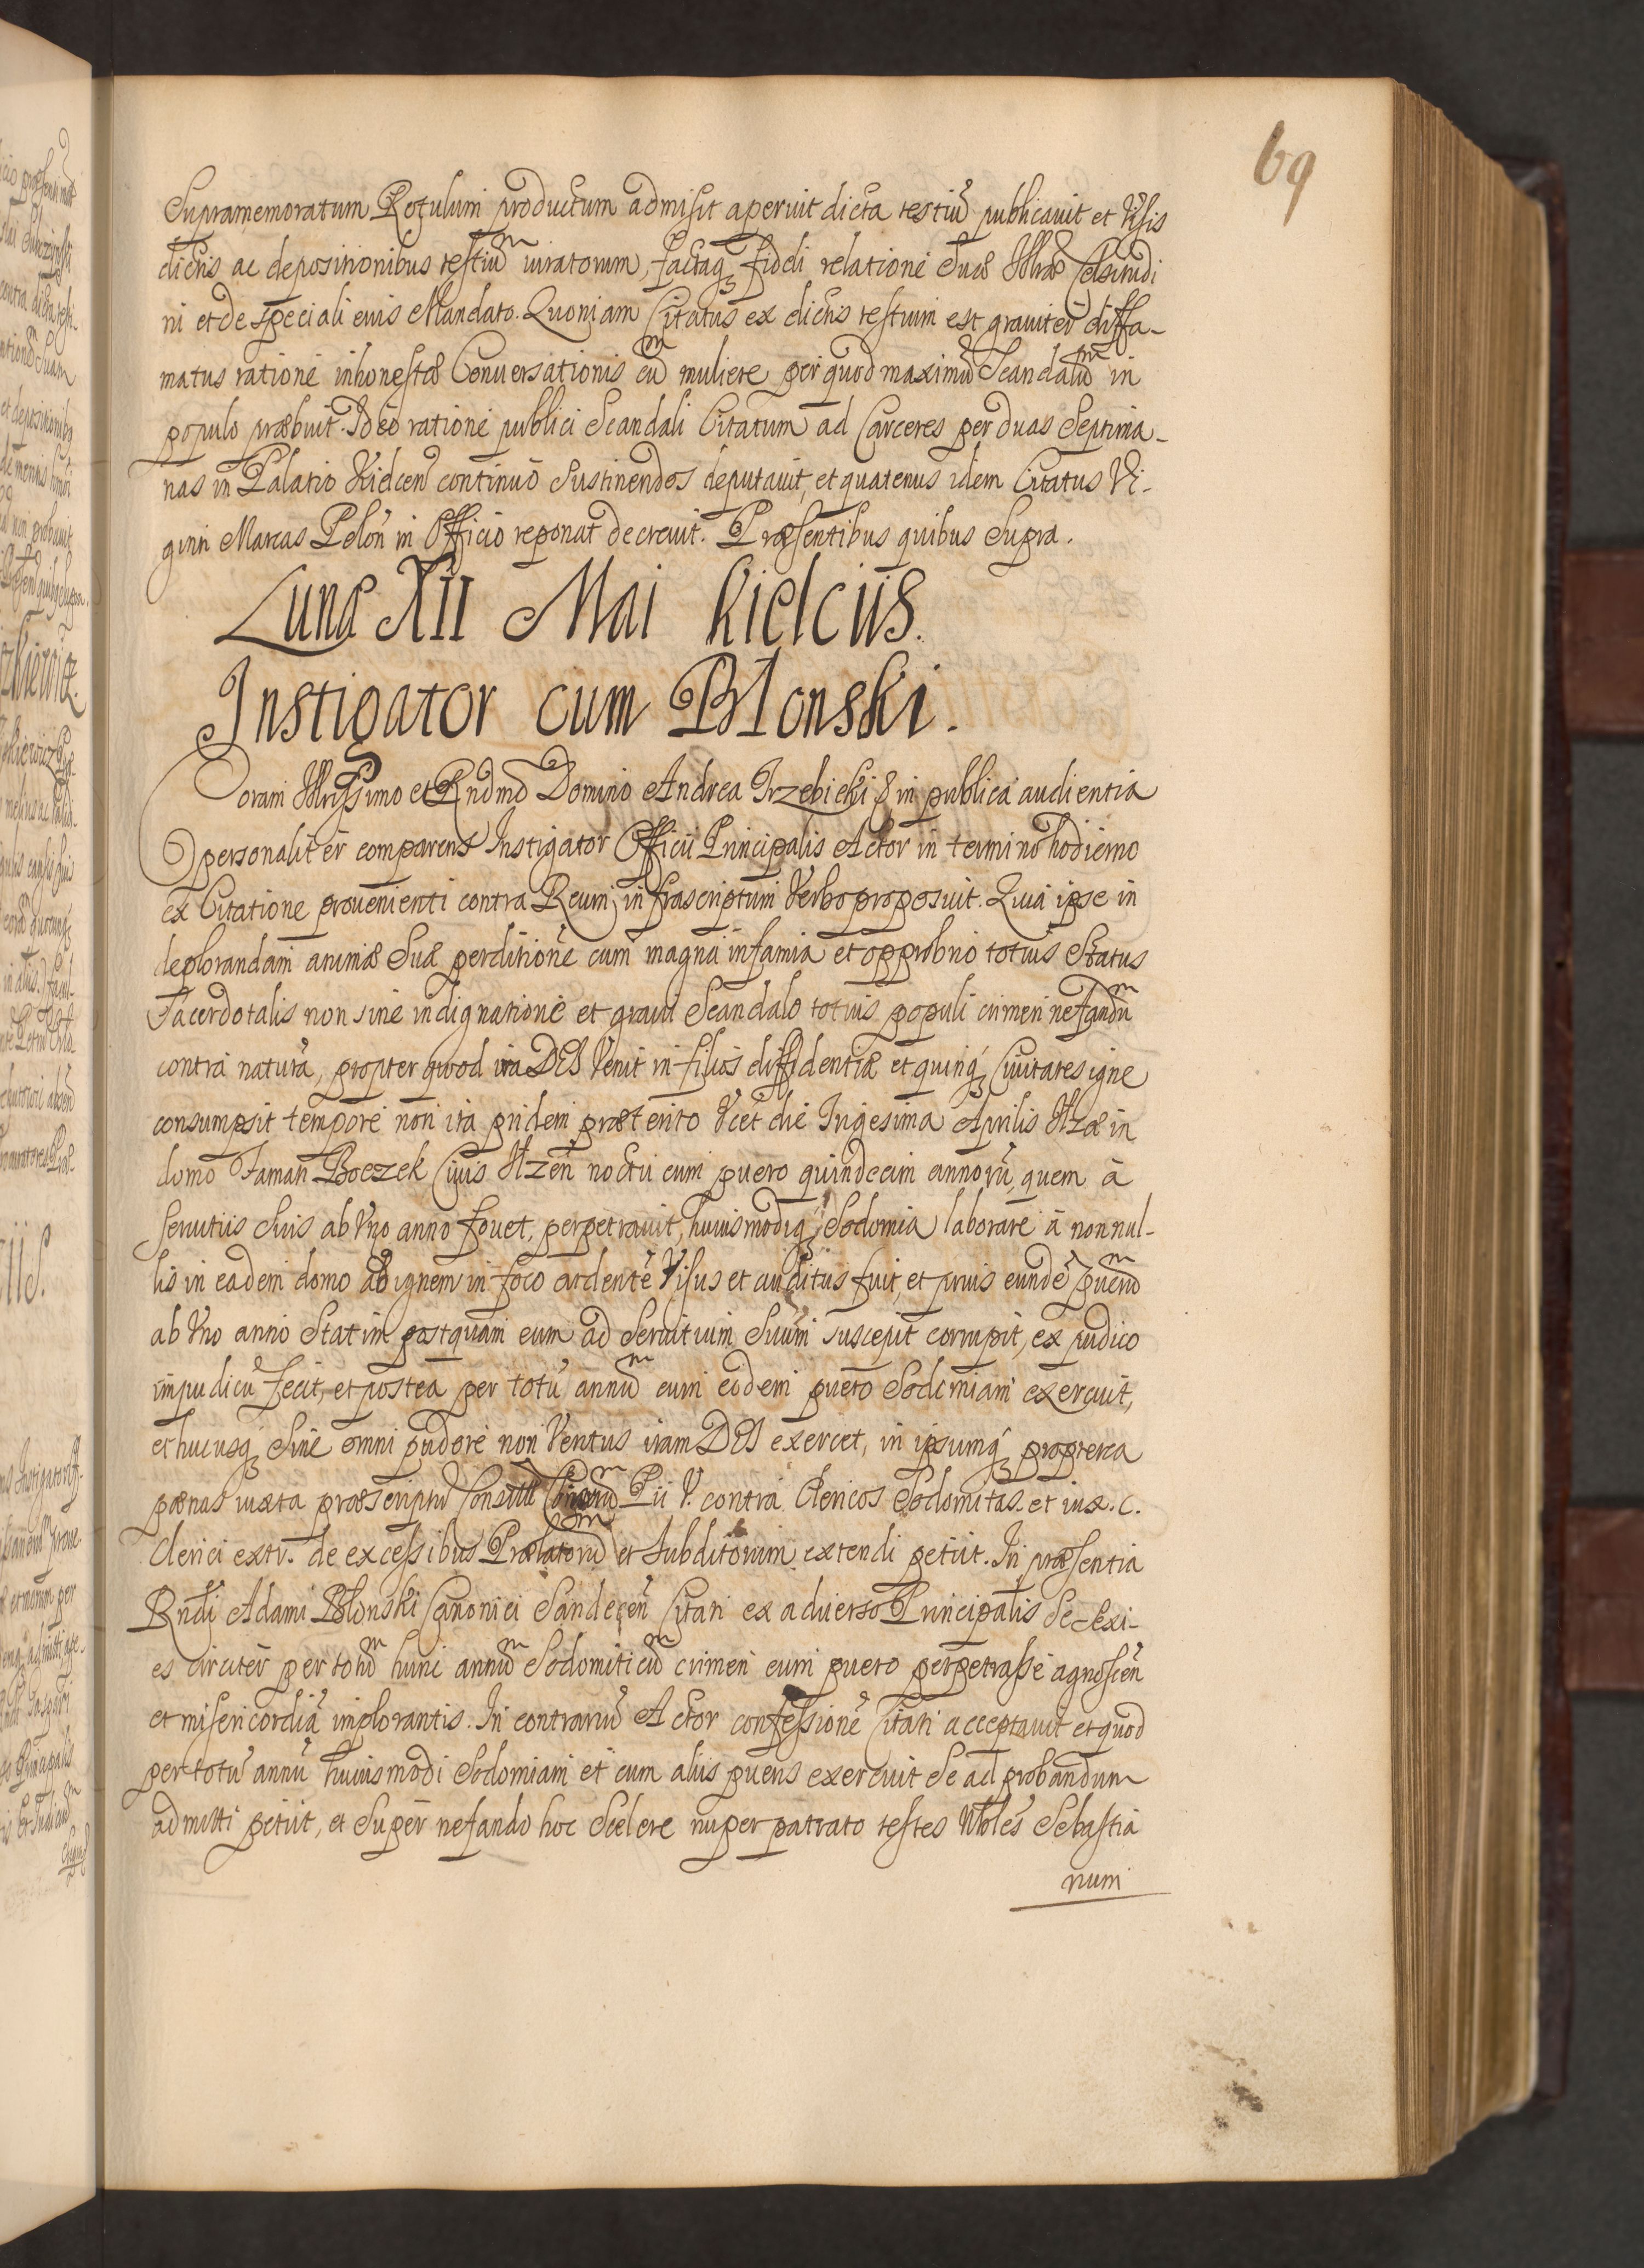 69
Supramemoratum Rotulum productum admisit aperuit dicta testiũ publicauit et Visis
dictis ac depositionibus testiũ iuratorum, factaq; fideli relatione Suæ Illræ Celsitudi
ni et de speciali eius Mandato. Quoniam Citatus ex dictis testium est grauiter diffa-
matus ratione inhonestæ Conuersationis cũ muliere per quod maximũ Scandalũ in
populo præbuit. Ideo ratione publici Scandali Citatum ad Carceres per duas Septima-
nas in Palatio Kielceñ continuo Sustinendos deputauit, et quatenus idem Citatus Vi-
ginti Marcas Poloñ in Officio reponat decreuit. Præsentibus quibus Supra.
Lunæ XII Mai Kielciis.
Instigator cum Błonski.
Coram Illrissimo et Rndmo Domino Andrea Trzebicki & in publica audientia
personaliter comparens Instigator Officii Principalis Actor in termino hodierno
ex Citatione prouenienti contra Reum infrascriptum Verbo proposuit. Quia ipse in
deplorandam animæ Suæ perditionẽ cum magna infamia et opprobrio totius Status
Sacerdotalis non sine indignatione et graui Scandalo totius populi crimen nefandũ
contra naturã, propter quod ira DEI Venit in filios diffidentiæ et quinq; Ciuitates igne
consumpsit tempore non ita pridem præterito Vcet die Trigesima Aprilis Ilzæ in
domo Famati Boczek Ciuis Ilzeñ noctu cum puero quindecim annorũ, quem à
seruitiis Suis ab Vno anno fouet, perpetrauit, huiusmodiq; Sodomia laborare à nonnul-
lis in eadem domo ab ignem in foco ardentẽ Visus et auditus fuit, et prius eundẽ puerũ
ab Vno anno Statim postquam eum ad Seruitium Suum suscepit corrupit, ex pudico
impudicũ fecit, et postea per totũ annũ cum eodem puero Sodomiam exercuit,
et hucusq; Sine omni pudore non Veritus iram DEI exercet, in ipsumq; propterea
pœnas iuxta præscriptũ Pii V. contra Clericos Sodomitas et iux. C.
Clerici extr. de excessibus Prælatorũ et Subditorum extendi petiit. In præsentia
Rndi Adami Błonski Canonici Sandeceñ Citati ex aduerso Principalis Se Sexi-
es circiter per totũ hunc annũ Sodomiticũ crimen cum puero perpetrasse agnosceñ
et misericordiã implorantis. In contrariũ Actor confessionẽ Citati acceptauit et quod
per totũ annũ huiusmodi Sodomiam et cum aliis pueris exercuit Se ad probandum
admitti petiit, et Super nefando hoc Scelere nuper patrato testes Nbles Sebastia
num